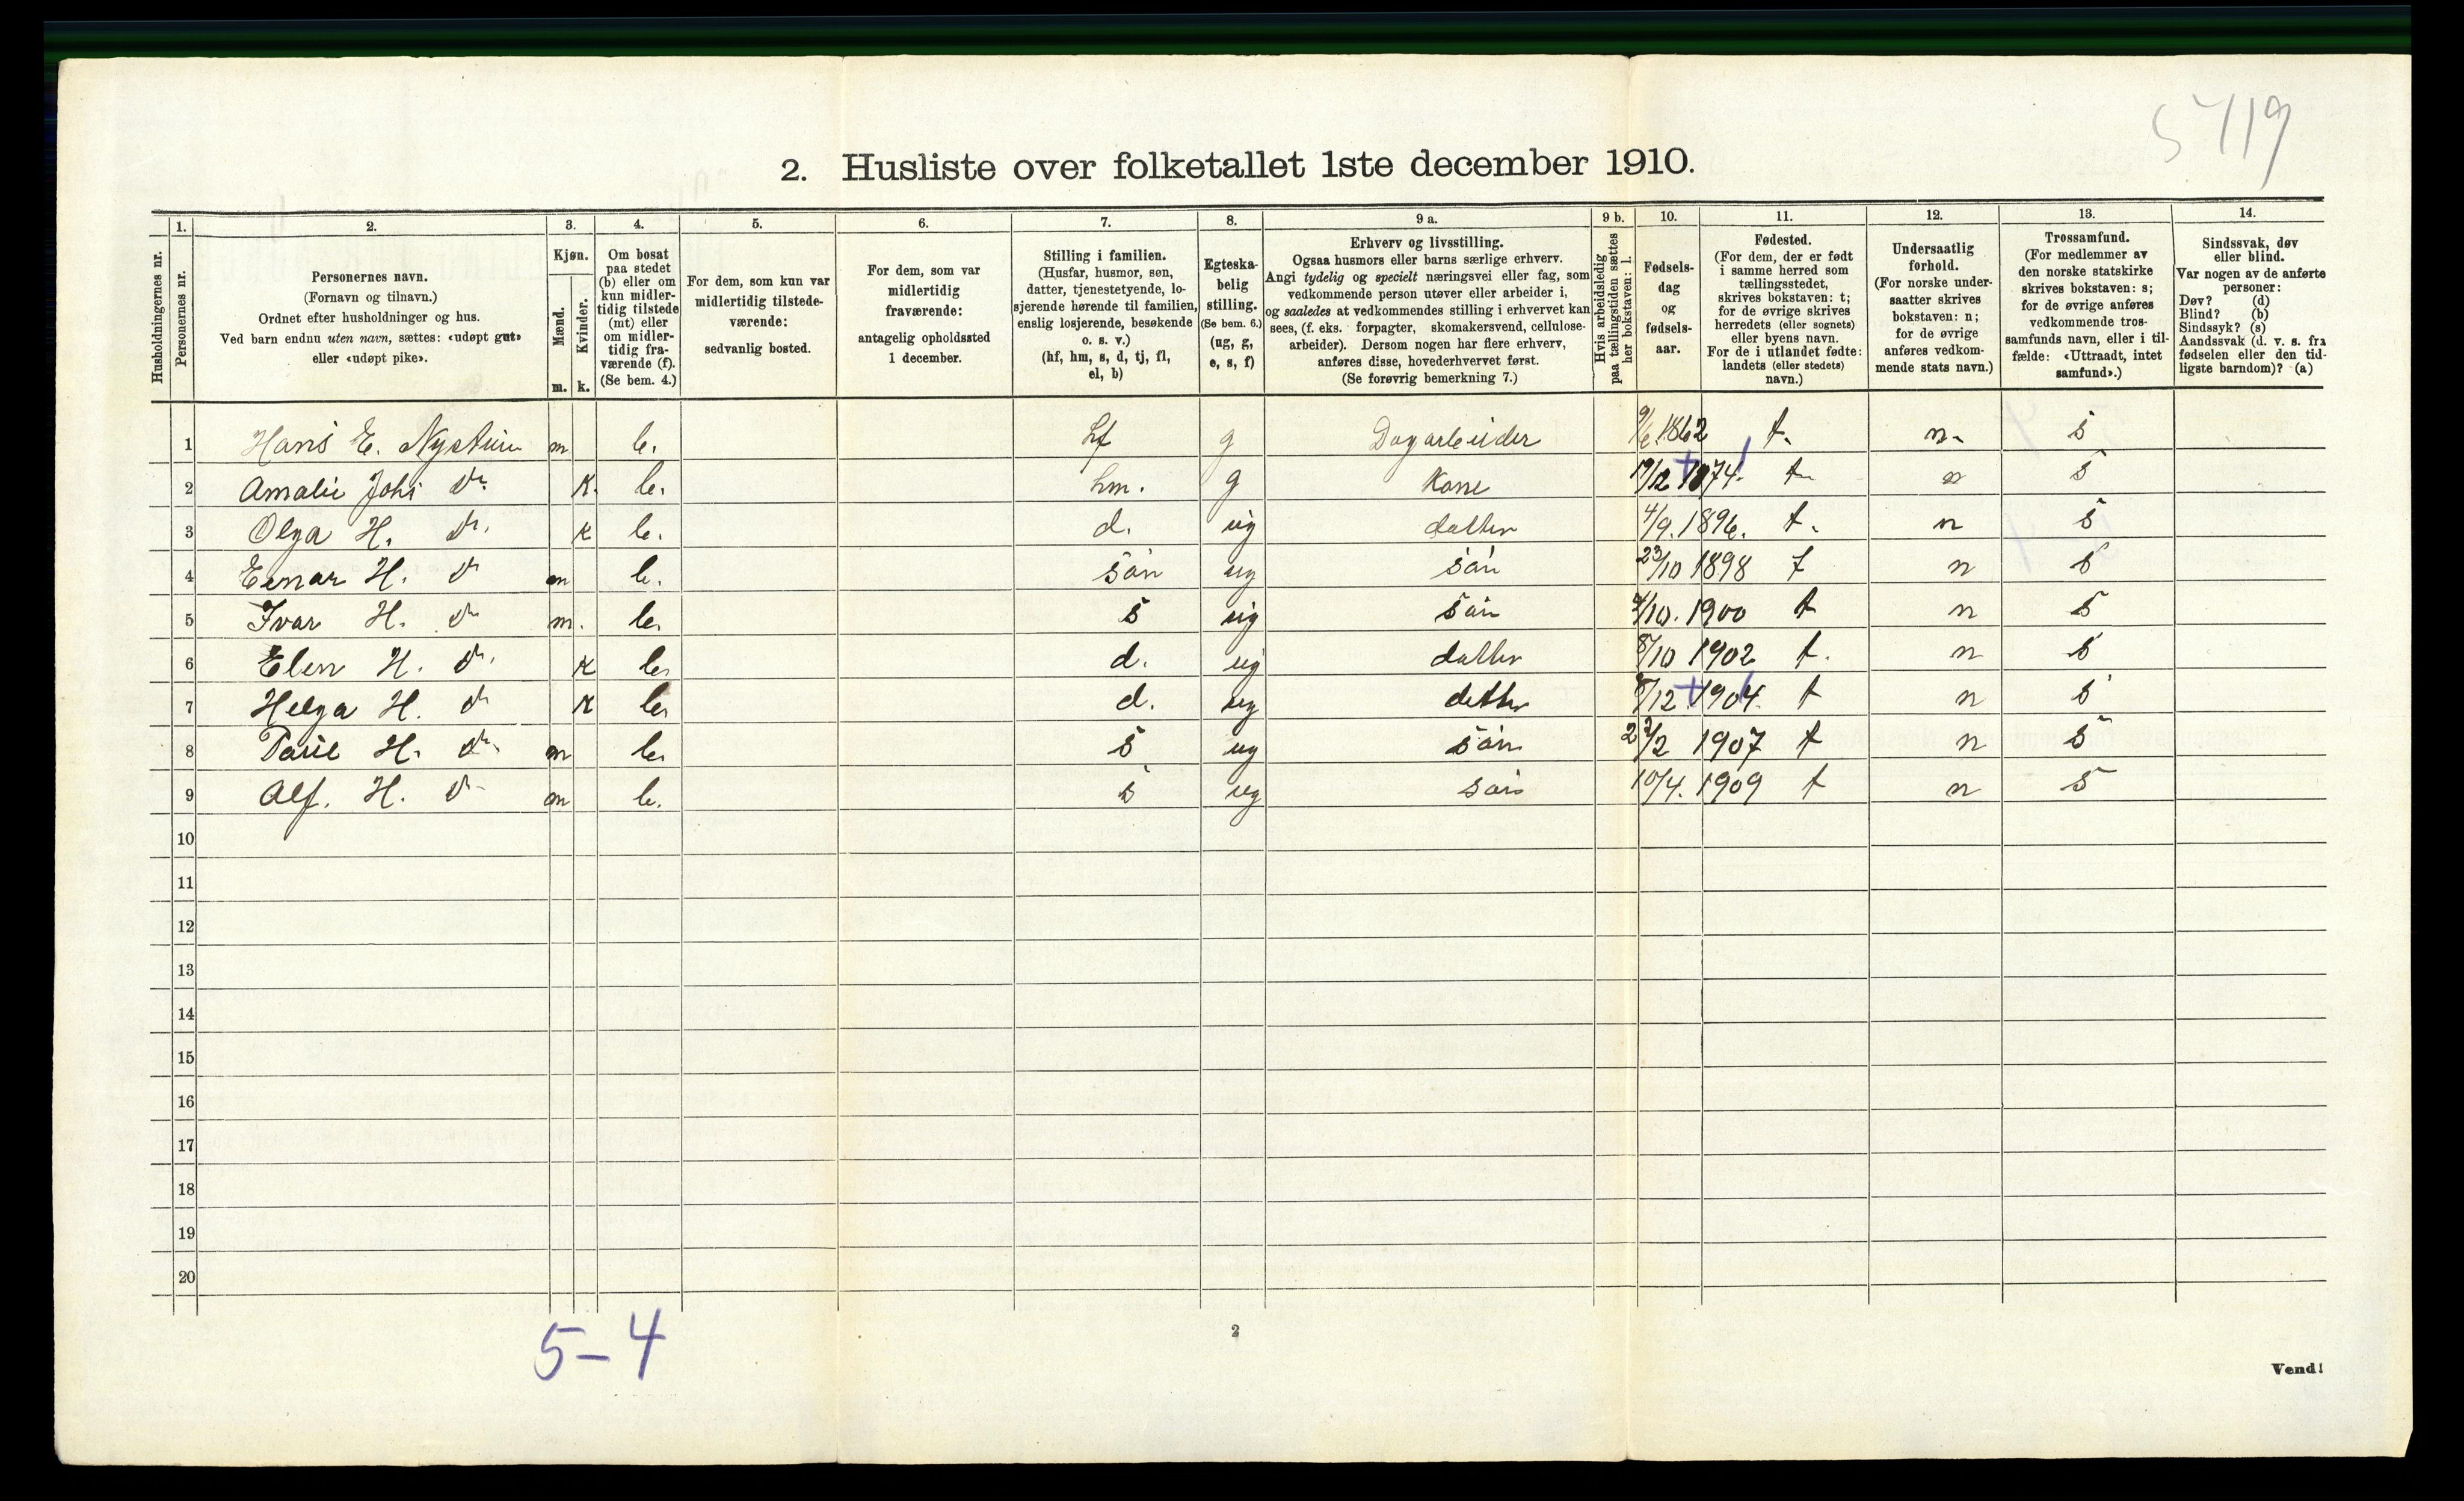 5419
2. Husliste over folketallet 1ste december 1910.
Husholdningernes nr.
1. Personernes nr.
2. Personernes navn. (Fornavn og tilnavn.) Ordnet efter husholdninger og hus. Ved barn endnu uten navn, sættes: «udøpt gut» eller «udøpt pike».
3. Kjøn. Mænd. m. Kvinder. k.
4. Om bosat paa stedet (b) eller om kun midlertidig tilstede (mt) eller om midlertidig fraværende (f). (Se bem. 4.)
5. For dem, som kun var midlertidig tilstedeværende: sedvanlig bosted.
6. For dem, som var midlertidig fraværende: antagelig opholdssted 1 december.
7. Stilling i familien. (Husfar, husmor, søn, datter, tjenestetyende, losjerende hørende til familien, enslig losjerende, besøkende o. s. v.) (hf, hm, s, d, tj, fl, el, b)
8. Egteskabelig stilling. (Se bem. 6.) (ug, g, e, s, f)
9 a. Erhverv og livsstilling. Ogsaa husmors eller barns særlige erhverv. Angi tydelig og specielt næringsvei eller fag, som vedkommende person utøver eller arbeider i, og saaledes at vedkommendes stilling i erhvervet kan sees, (f. eks. forpagter, skomakersvend, cellulosearbeider). Dersom nogen har flere erhverv, anføres disse, hovederhvervet først. (Se forøvrig bemerkning 7.)
9 b. Hvis arbeidsledig paa tællingstiden sættes her bokstaven: l.
10. Fødselsdag og fødselsaar.
11. Fødested. (For dem, der er født i samme herred som tællingsstedet, skrives bokstaven: t; for de øvrige skrives herredets (eller sognets) eller byens navn. For de i utlandet fødte: landets (eller stedets) navn.)
12. Undersaatlig forhold. (For norske undersaatter skrives bokstaven: n; for de øvrige anføres vedkommende stats navn.)
13. Trossamfund. (For medlemmer av den norske statskirke skrives bokstaven: s; for de øvrige anføres vedkommende trossamfunds navn, eller i tilfælde: «Uttraadt, intet samfund».)
14. Sindssvak, døv eller blind. Var nogen av de anførte personer: Døv? (d) Blind? (b) Sindssyk? (s) Aandssvak (d. v. s. fra fødselen eller den tidligste barndom)? (a)
1 Hans E. m b. hf g Dagarbeider 9/6 1862 t. n- s
2 Amalie Johs do K. b. hm. g Kone 19/12 1874. t n s
3 Olga H. do. K b. d. ug datter 4/9. 1896. t. n s
4 Einar H. do m b. søn ug søn 23/10 1898 t n s
5 Ivar H. do m. b. s ug søn 4/10. 1900 t n s
6 Elen H. do. K b. d. ug datter 8/10 1902 t. n s
7 Helga H. do K b. d. ug datter 8/12 1904. t n s
8 H. do. m b. s ug søn 22/2 1907 t n s
9 Alf. H. do m b. s ug søn 10/4. 1909 t n s
10
11
12
13
14
15
16
17
18
19
20
5-4
2
Vend!